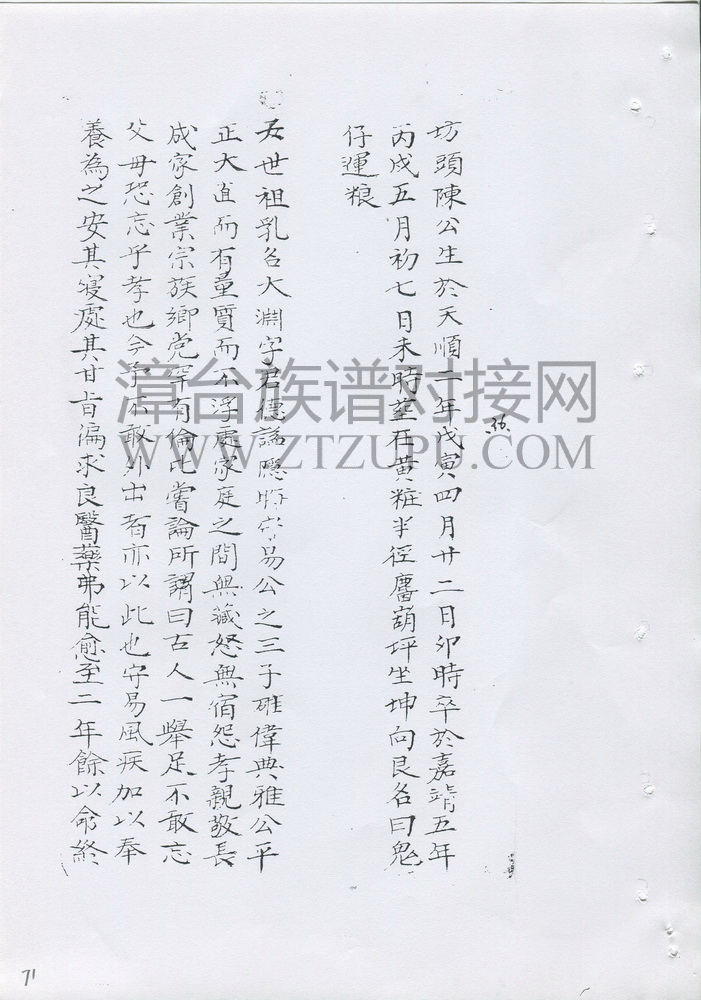 坊頭陳公生於天順二年戊寅四月廿二日卯時卒於嘉靖五年
丙戌五月初七日未時塟在黄粧半徑萠坪坐坤向艮名曰鬼
仔運粮
五世祖乳名大淵字君德諡隱時守易公之三子雄偉典雅公平
正大直而有量質而不浮處家庭之間無藏怒無宿怨孝親敬長
成家創業宗族鄉党罕有倫比嘗論所謂曰古人一舉足不敢忘
父毋恐忘乎孝也今予不敢外出者亦以此也守易風疾加以奉
養為之安其寢處其甘旨漏求良醫藥弗能愈至二年餘以命終
36
漳台族谱对接网
WWW.ZTZUPU.COM
71